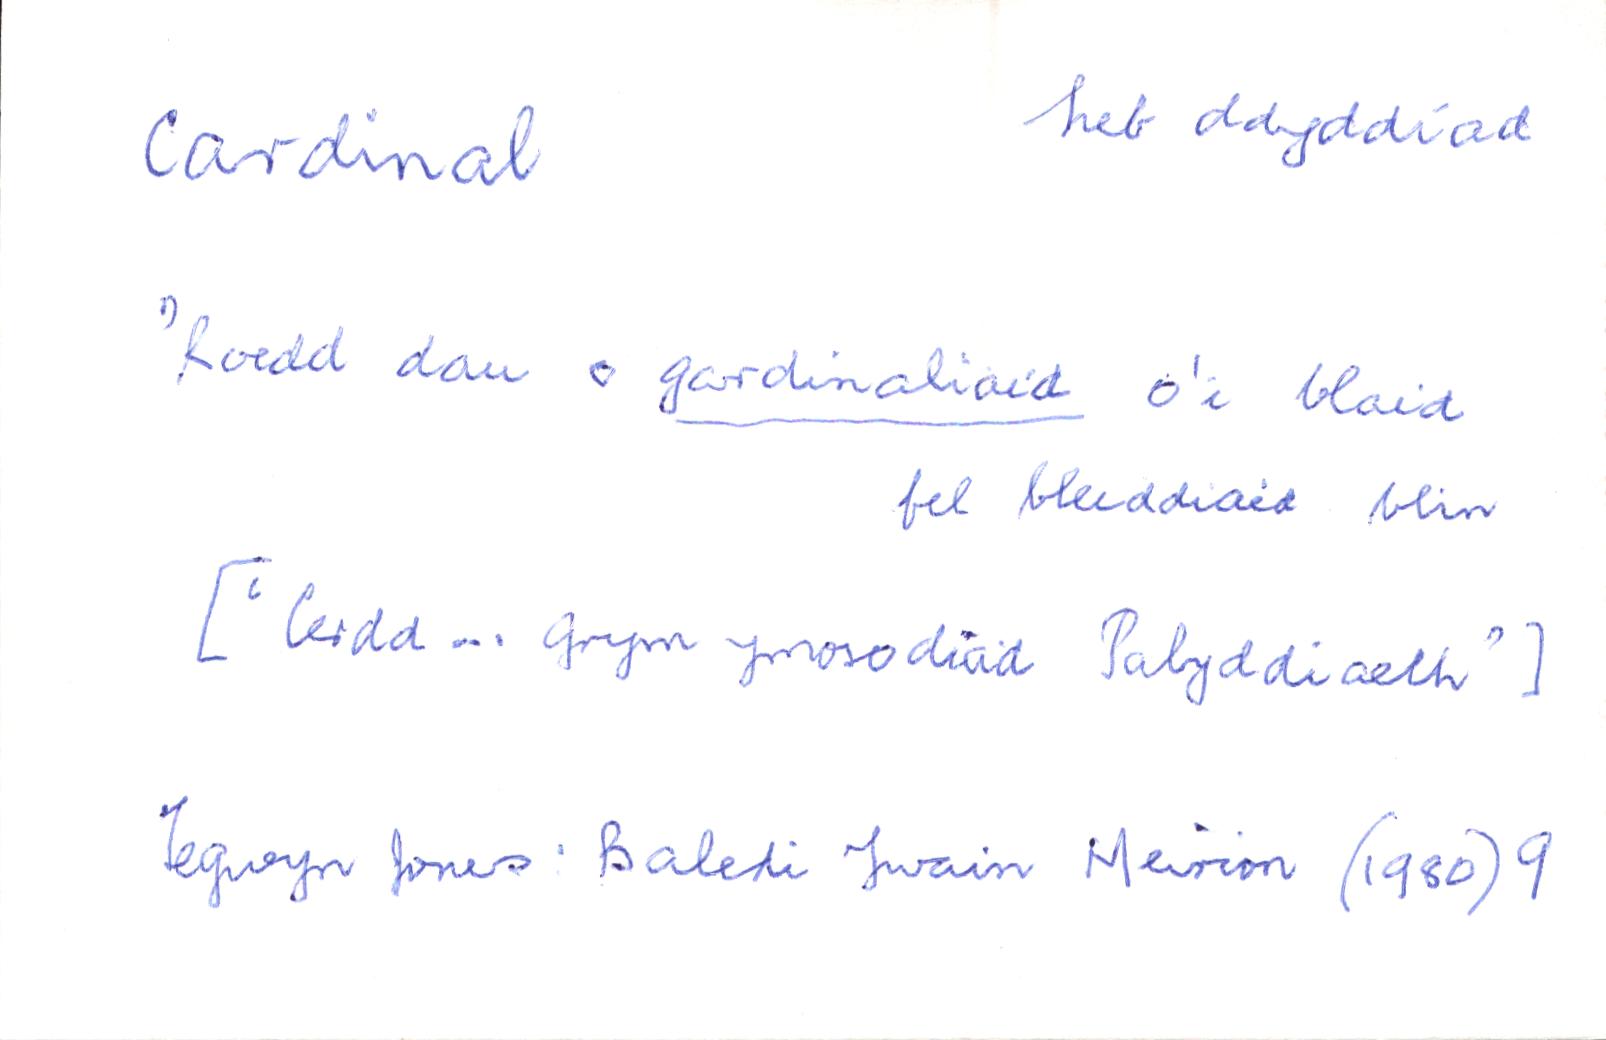 Cardinal
heb ddyddiad
"Roedd dau o gardinaliaid o'i blaid
fel bleiddiaid blin
['Cerdd ... Grym ymosodiad Pabyddiaeth']
Tegwyn Jones: Baledi Ywain Meirion (1980) 9